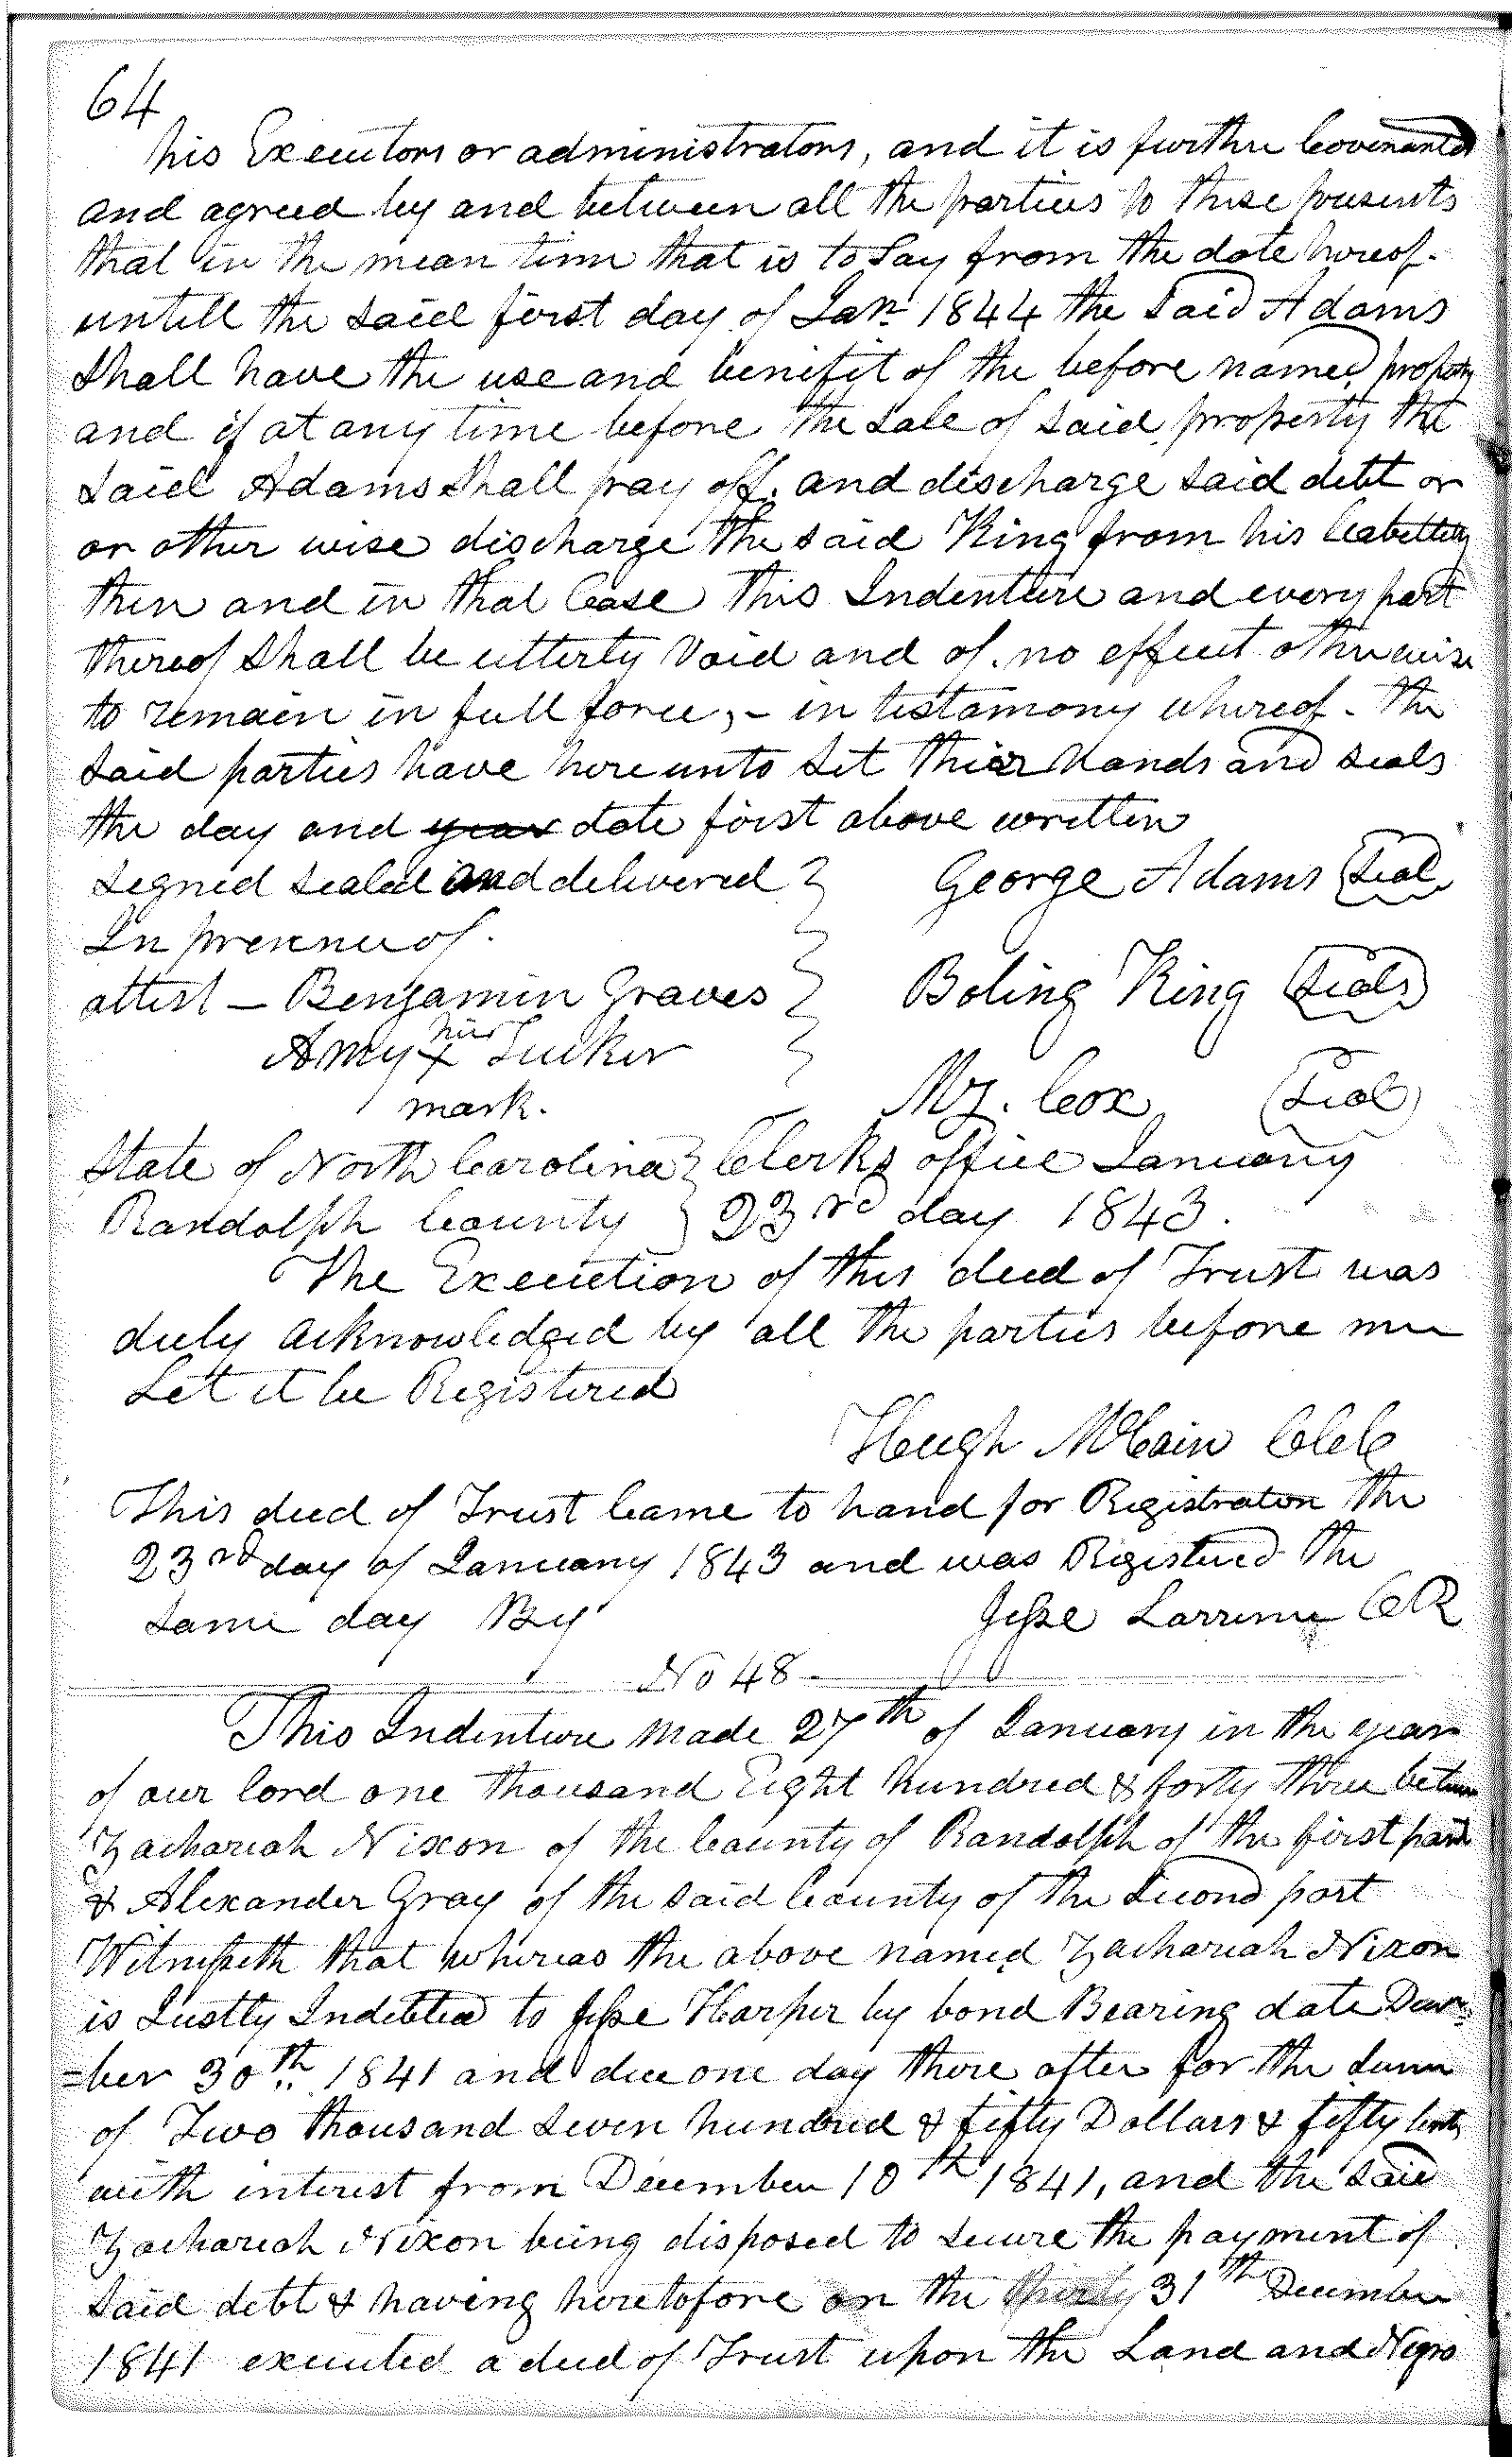 64
his Executors or administrators, and it is further Covenanted
and agreed by and between all the parties to these presents
that in the mean time that is to Say from the date hereof.
untill the said first day of Jany 1844 the Said Adams
Shall have the use and benifit of the before named property
and if at any time before the Sale of said property the
said Adams Shall pay off. and discharge said debt or
or other wise discharge the said King from his leabettity
then and in that Case this Indenture and every part
thereof Shall be utterly Void and of. no effect otherwise
to remain in full force, - in testamony whereof - the
said parties have here unto Set thier hands and seals
the day and year date first above written
Signed Sealed and delivered George Adams Seal
In presence of.
attest - Benjamin Graves Boling King Seals
his
Amey x Tucker
mark. My. Cox Seal
State of North Carolina } Clerks office January
Randolph County } 23rd day 1843.
The Execution of this deed of Trust was
duly acknowledged by all the parties before me
Let it be Registered
Hugh McCain Clk
This deed of Trust Came to hand for Registraton the
23rd day of January 1843 and was Registered the
Same day By Jesse Larrence CR
No 48
This Indenture made 27th of January in the year
of our lord one thousand Eight hundred & forty three between
Zachariah Nixon of the County of Randolph of the first part
& Alexander Gray of the said County of the Second part
Witnesseth that whereas the above named Zachariah Nixon
is Justly Indebted to Jesse Harper by bond Bearing date Decem
=ber 30th 1841 and due one day there after for the Sum
of Two thousand Seven hundred & fifty Dollars & fifty Cents
with interest from December 10th 1841, and the Said
Zachariah Nixon being disposed to Secure the payment of
Said debt & having heretofore on the thirty 31th December
1841 executed a deed of Trust upon the Land and Negro